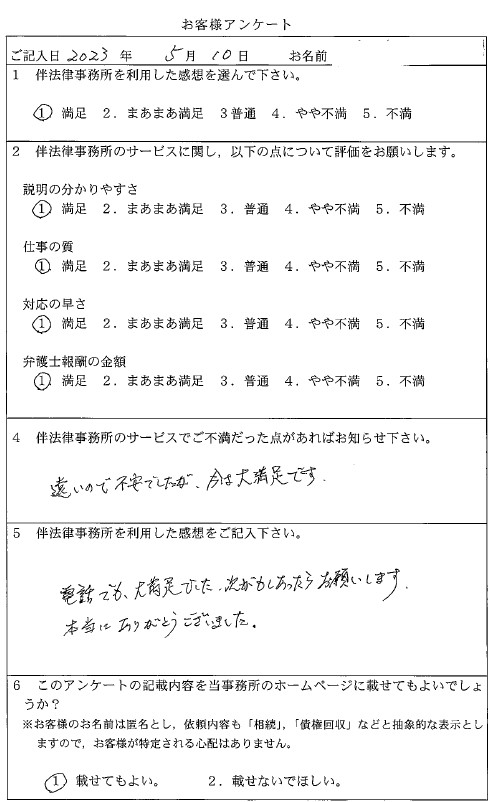 お客様アンケート
ご記入日 2023 年 5月 10日 お名前
1 伴法律事務所を利用した感想を選んで下さい。
① 満足 2．まあまあ満足 3普通 4．やや不満 5．不満
2 伴法律事務所のサービスに関し，以下の点について評価をお願いします。
説明の分かりやすさ
① 満足 2．まあまあ満足 3．普通 4．やや不満 5．不満
仕事の質
① 満足 2．まあまあ満足 3．普通 4．やや不満 5．不満
対応の早さ
① 満足 2．まあまあ満足 3．普通 4．やや不満 5．不満
弁護士報酬の金額
① 満足 2．まあまあ満足 3．普通 4．やや不満 5．不満
4 伴法律事務所のサービスでご不満だった点があればお知らせ下さい。
遠いので不安でしたが、今は大満足です.
5 伴法律事務所を利用した感想をご記入下さい。
電話でも、大満足でした.次がもしあったらお願いします.
本当にありがとうございました。
6 このアンケートの記載内容を当事務所のホームページに載せてもよいでしょ
うか？
※お客様のお名前は匿名とし，依頼内容も「相続」，「債権回収」などと抽象的な表示とし
ますので，お客様が特定される心配はありません。
① 載せてもよい。 2．載せないでほしい。